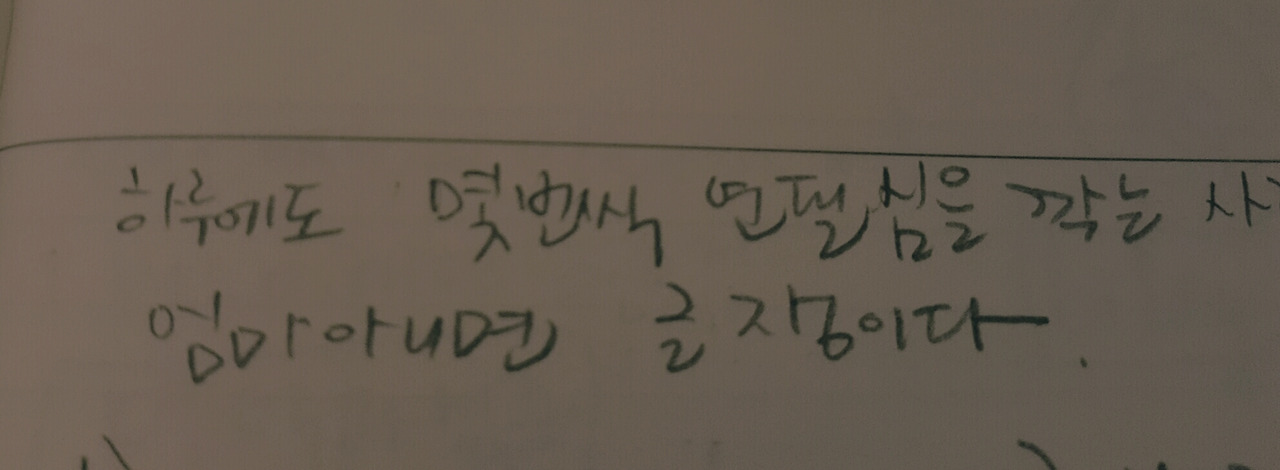 하루에도 몇번씩 연필심을 깍는 사
엄마아니면 글쟁이다